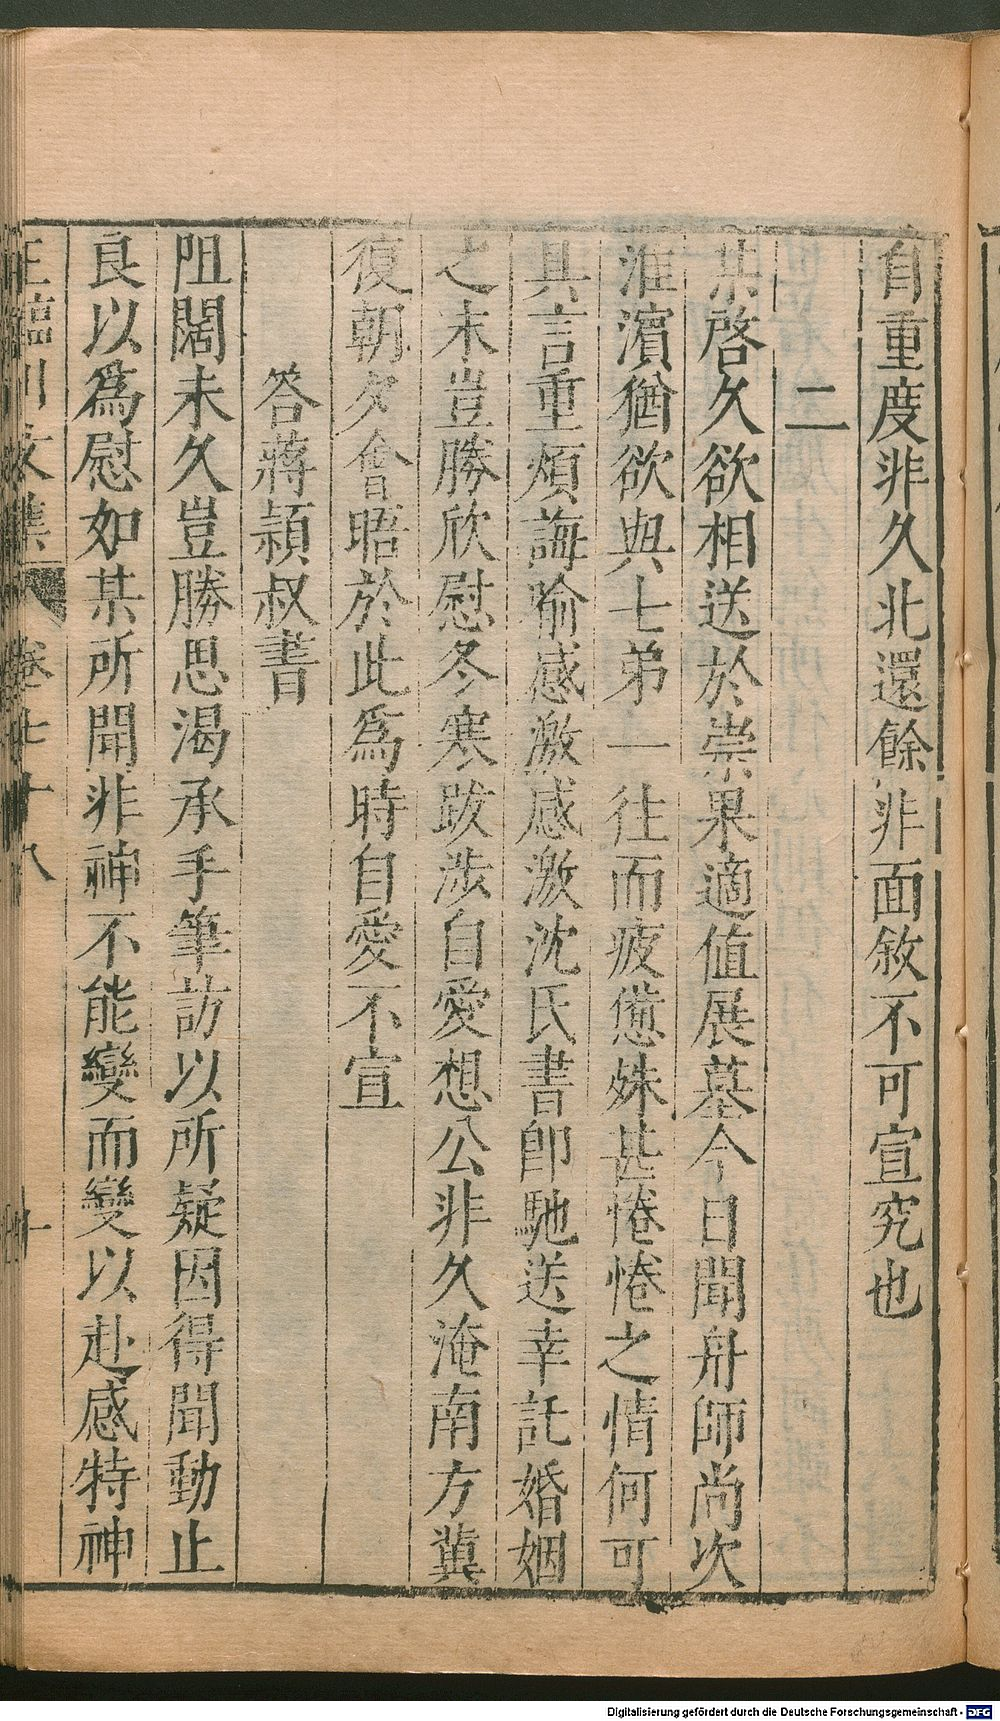 自重度非久北還餘非面敘不可宣究也
二
某啓久欲相送於崇果適值展墓今日聞舟師尚次
淮濵猶欲與七弟一往而疲憊姝甚惓惓之情何可
具言重煩誨喻感激感激沈氏書卽馳送幸託婚姻
之末豈勝欣慰冬寒跋涉自愛想公非久淹南方冀
復朝夕會晤於此爲時自愛不宣
答蔣頴叔書
阻闊未久豈勝思渴承手筆訪以所疑因得聞動止
良以爲慰如某所聞非神不能變而變以赴感特神
王臨川文集 卷七十八 十
Digitalisierung gefördert durch die Deutsche Forschungsgemeinschaft - DFG